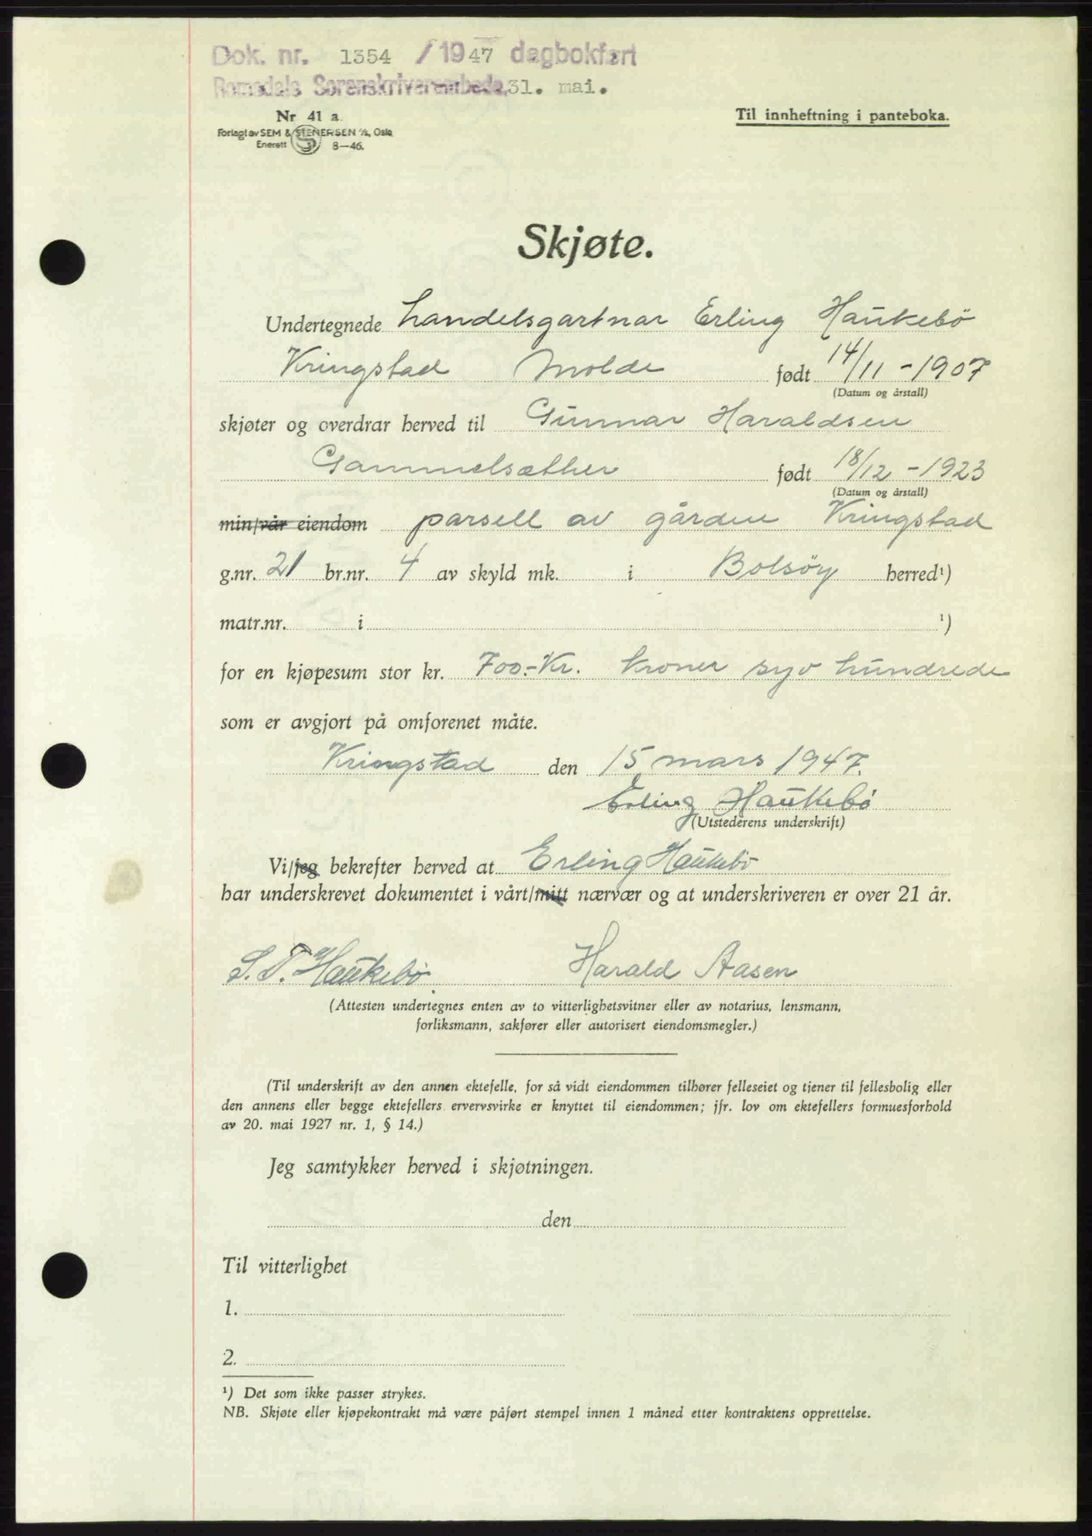 Dok. nr. 1354 / 1947 dagbokført
Romsdals Sorenskriverembede, 31. mai.
Nr 41 a.
Forlagt av SEM & STENERSEN A/S, Oslo
Enerett S 8—46.
Til innheftning i panteboka.
Skjøte.
Undertegnede handelsgartnar Erling Haukebö
Kringstad Molde født 14/11 - 1907
(Datum og årstall)
skjøter og overdrar herved til Gunnar Haraldsen
Gammelsæther født 18/12 - 1923
(Datum og årstall)
min/vår eiendom parsell av gården Kringstad
g.nr. 21 br.nr. 4 av skyld mk. i Bolsöy herred¹)
matr.nr. i ¹)
for en kjøpesum stor kr. 700.- Kr. kroner syv hundrede
som er avgjort på omforenet måte.
Kringstad den 15 mars 1947.
Erling Haukebö
(Utstederens underskrift)
Vi/jeg bekrefter herved at Erling Haukebö
har underskrevet dokumentet i vårt/mitt nærvær og at underskriveren er over 21 år.
S. T. Haukebö. Harald Aasen
(Attesten undertegnes enten av to vitterlighetsvitner eller av notarius, lensmann,
forliksmann, sakfører eller autorisert eiendomsmegler.)
(Til underskrift av den annen ektefelle, for så vidt eiendommen tilhører felleseiet og tjener til fellesbolig eller
den annens eller begge ektefellers ervervsvirke er knyttet til eiendommen; jfr. lov om ektefellers formuesforhold
av 20. mai 1927 nr. 1, § 14.)
Jeg samtykker herved i skjøtningen.
den
Til vitterlighet
1.
2.
¹) Det som ikke passer strykes.
NB. Skjøte eller kjøpekontrakt må være påført stempel innen 1 måned etter kontraktens opprettelse.